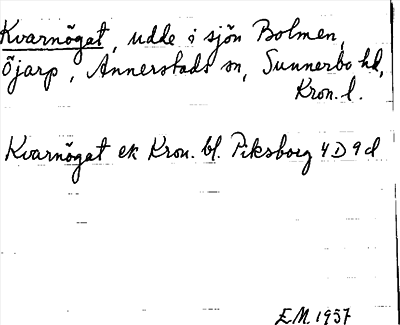 Kvarnögat, udde i sjön Bolmen,
Öjarp, Annerstads sn, Sunnerbo hd,
Kron. l.
Kvarnögat ek Kron. bl. Piksborg 4D9d
E.M. 1957